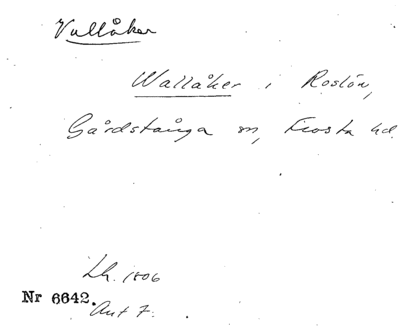 Vallåker
Wallåker i Roslöv,
Gårdstånga sn, Frosta hd.
Lh. 1806
Nr 6642.
Ant 7.